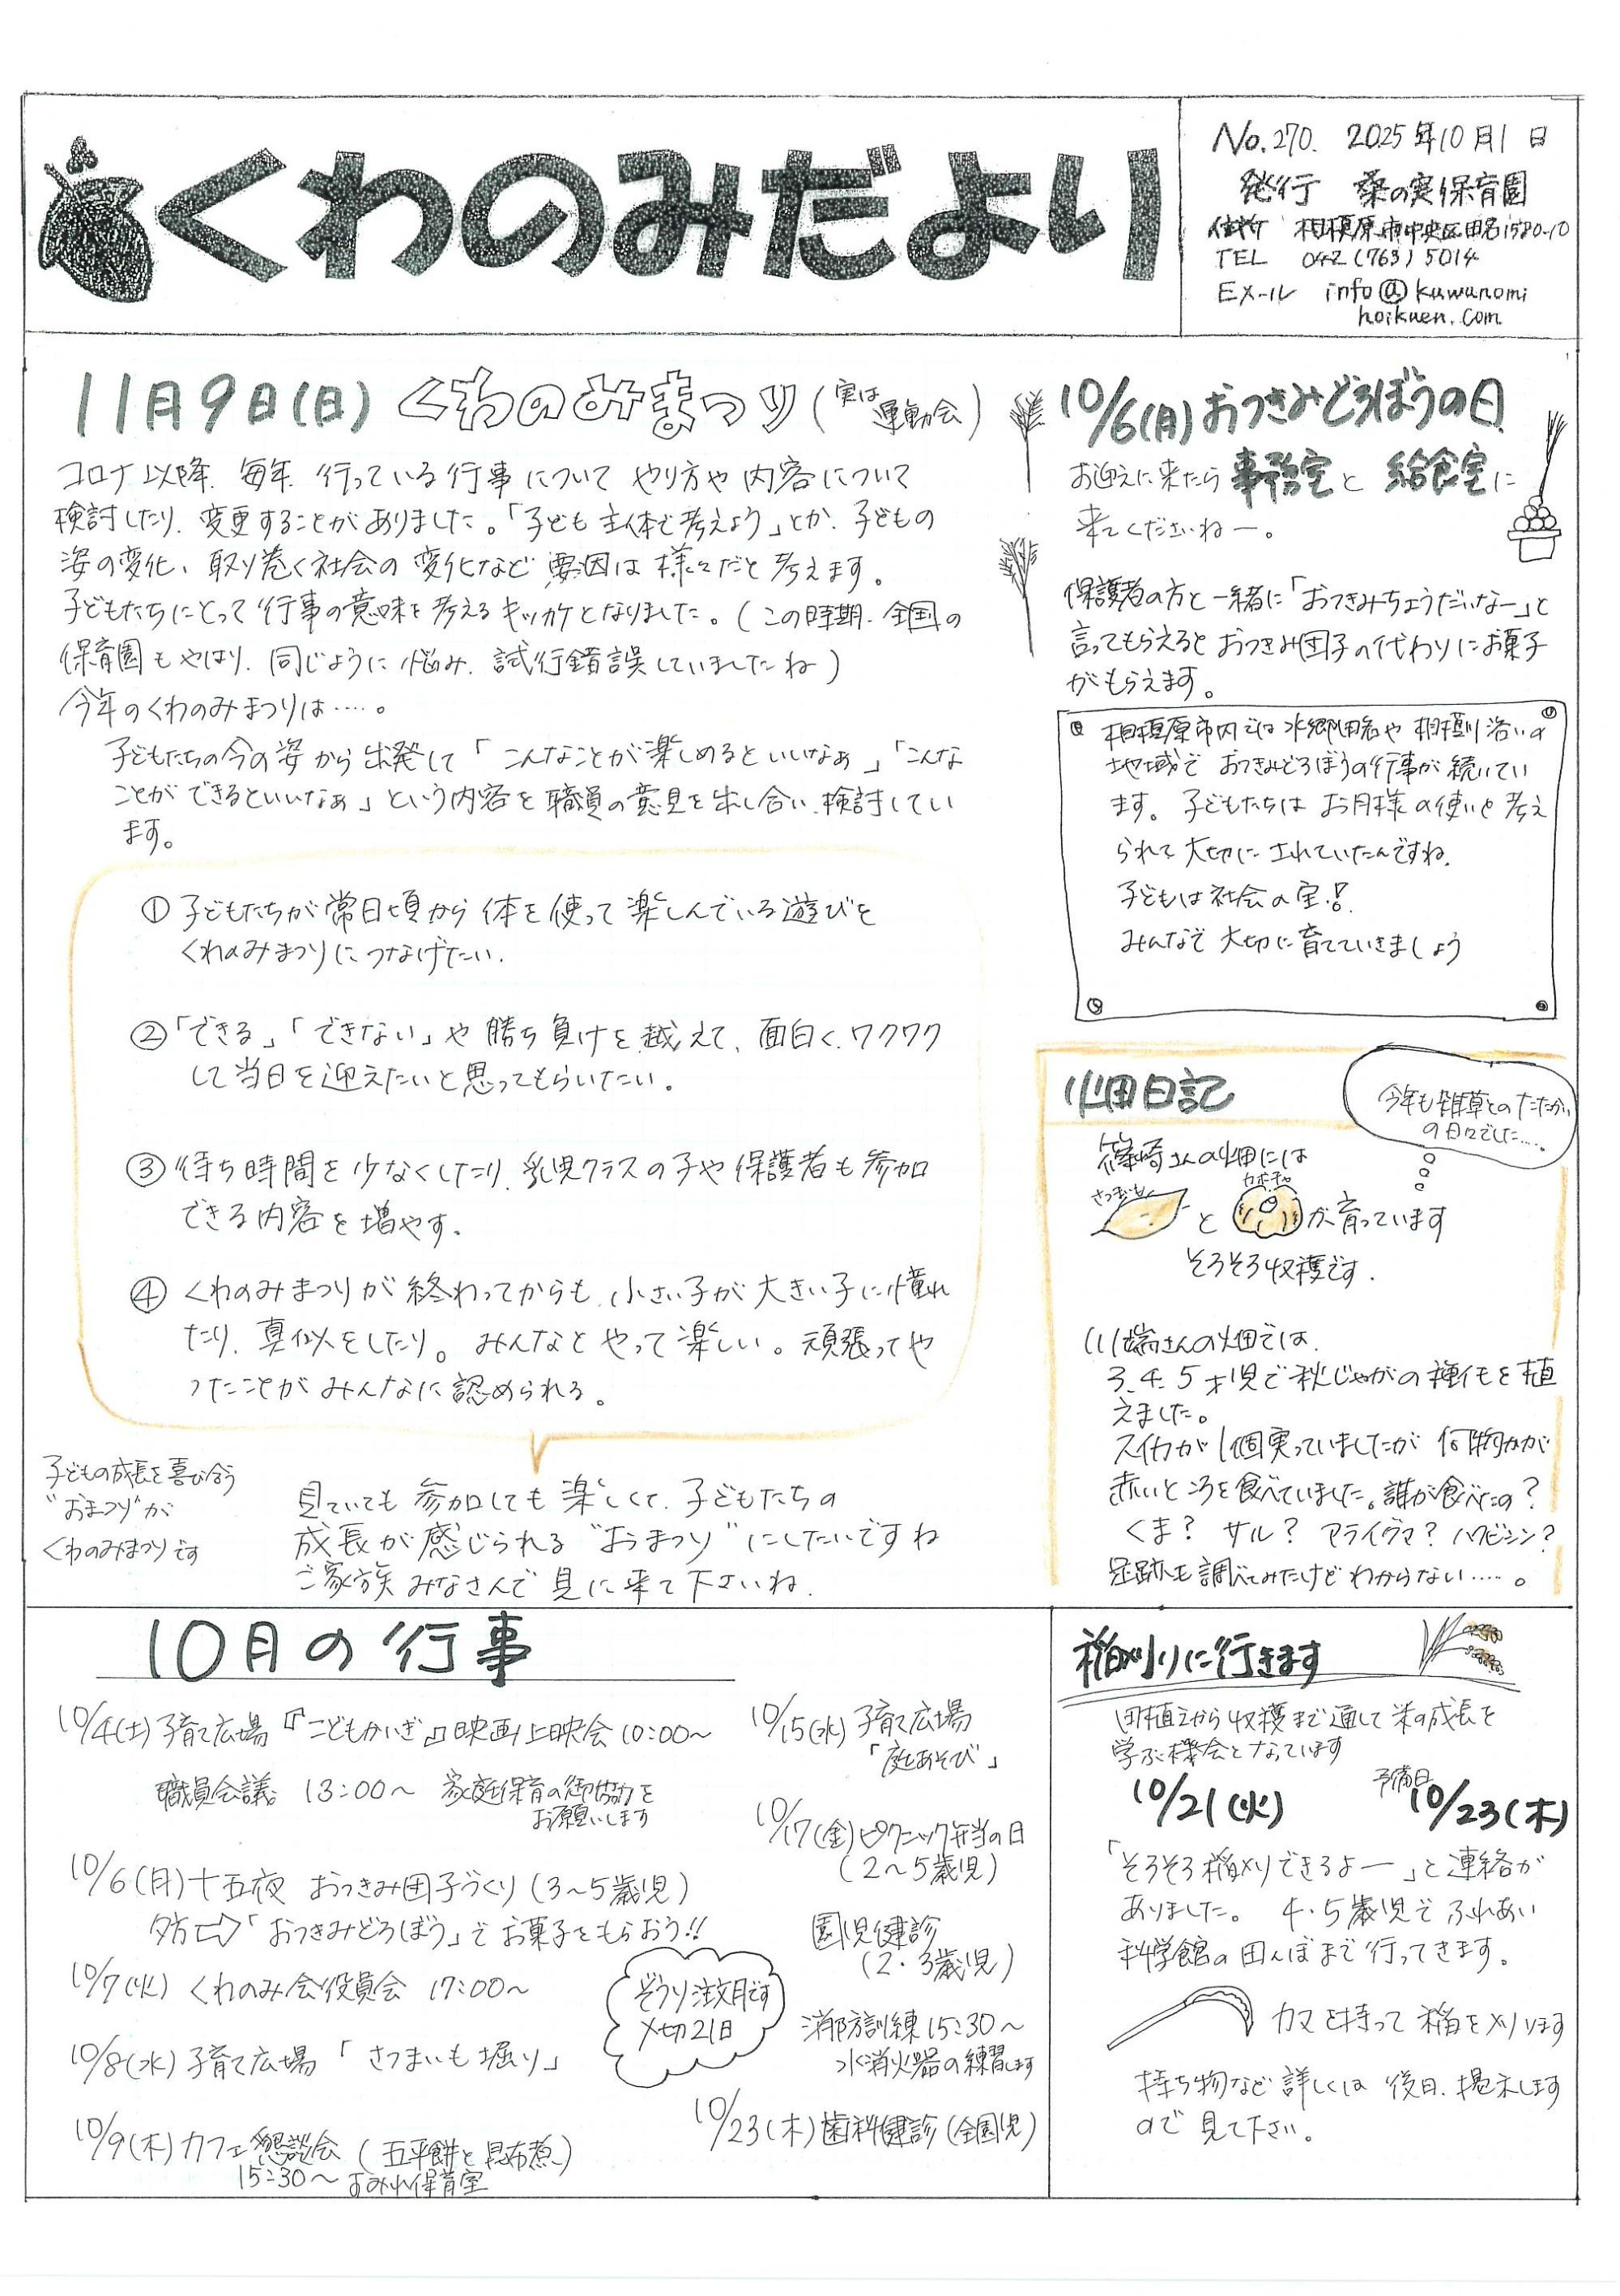 くわのみだより
No.270. 2025年10月1日
発行 桑の実保育園
住所 相模原市中央区田名1580-10
TEL 042(763)5014
Eメール info@kuwanomi
hoikuen.com
11月9日(日) くわのみまつり(実は運動会)
コロナ以降、毎年、行っている行事について やり方や内容について
検討したり、変更することがありました。「子ども主体で考えよう」とか、子どもの
姿の変化、取り巻く社会の変化など 要因は様々だと考えます。
子どもたちにとって行事の意味を考えるキッカケとなりました。(この時期、全国の
保育園もやはり、同じように悩み、試行錯誤していましたね)
今年のくわのみまつりは……。
子どもたちの今の姿から出発して「こんなことが楽しめるといいなぁ」「こんな
ことができるといいなぁ」という内容を職員の意見を出し合い、検討してい
ます。
① 子どもたちが常日頃から体を使って楽しんでいる遊びを
くわのみまつりにつなげたい.
②「できる」「できない」や勝ち負けを越えて、面白く、ワクワク
して当日を迎えたいと思ってもらいたい。
③ 待ち時間を少なくしたり、乳児クラスの子や保護者も参加
できる内容を増やす。
④ くわのみまつりが終わってからも、小さい子が大きい子に憧れ
たり、真似をしたり。みんなとやって楽しい。頑張ってや
ったことがみんなに認められる。
子どもの成長を喜び合う
“おまつり”が
くわのみまつりです
見ていても参加しても楽しくて、子どもたちの
成長が感じられる“おまつり”にしたいですね
ご家族みなさんで見に来て下さいね.
10/6(月)おつきみどろぼうの日
お迎えに来たら事務室と給食室に
来てくださいねー。
保護者の方と一緒に「おつきみちょうだいなー」と
言ってもらえるとおつきみ団子の代わりにお菓子
がもらえます。
相模原市内では水郷田名や相模川沿いの
地域でおつきみどろぼうの行事が続いてい
ます。子どもたちはお月様の使いと考え
られて大切にされていたんですね.
子どもは社会の宝!!
みんなで大切に育てていきましょう
畑日記
今年も雑草とのたたかい
の日々でした….
篠崎さんの畑には
さつまいも と カボチャ が育っています
そろそろ収穫です.
川端さんの畑では、
3.4.5才児で秋じゃがの種イモを植
えました。
スイカが1個実っていましたが 何物かが
赤いところを食べていました。誰が食べたの?
くま? サル? アライグマ? ハクビシン?
足跡も調べてみたけどわからない……。
10月の行事
10/4(土)子育て広場『「こどもかいぎ」』映画上映会10:00〜
職員会議 13:00〜 家庭保育の御協力を
お願いします
10/6(月)十五夜 おつきみ団子づくり(3〜5歳児)
夕方⇨「おつきみどろぼう」でお菓子をもらおう!!
10/7(火) くわのみ会役員会 17:00〜
10/8(水)子育て広場「さつまいも堀り」
10/9(木)カフェ懇談会(五平餅と昆布煮)
15:30〜 すみれ保育室
ぞうり注文用です
〆切21日
10/15(水)子育て広場
「庭あそび」
10/17(金)ピクニック弁当の日
(2〜5歳児)
園児健診
(2・3歳児)
消防訓練15:30〜
水消火器の練習します
10/23(木)歯科健診(全園児)
稲刈りに行きます
田植えから収穫まで通して米の成長を
学ぶ機会となっています
10/21(火) 予備日10/23(木)
「そろそろ稲刈りできるよー」と連絡が
ありました。4・5歳児でふれあい
科学館の田んぼまで行ってきます。
カマを持って稲を刈ります
持ち物など詳しくは後日、掲示します
ので見て下さい。